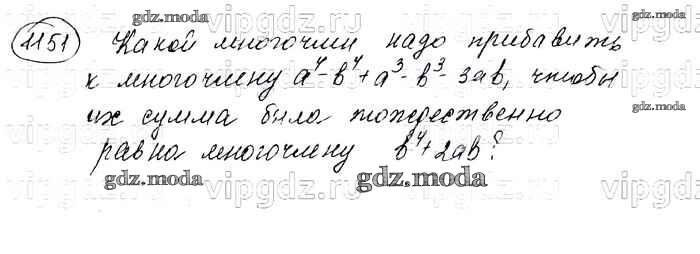 1151 Какой многочлен надо прибавить
к многочлену a⁴-b⁴+a³-b³-3ab, чтобы
их сумма была тождественно
равна многочлену b⁴+2ab?
gdz.moda
gdz.moda
gdz.moda
gdz.moda
gdz.moda
gdz.moda
vipgdz.moda
vipgdz.moda
vipgdz.moda
vipgdz.moda